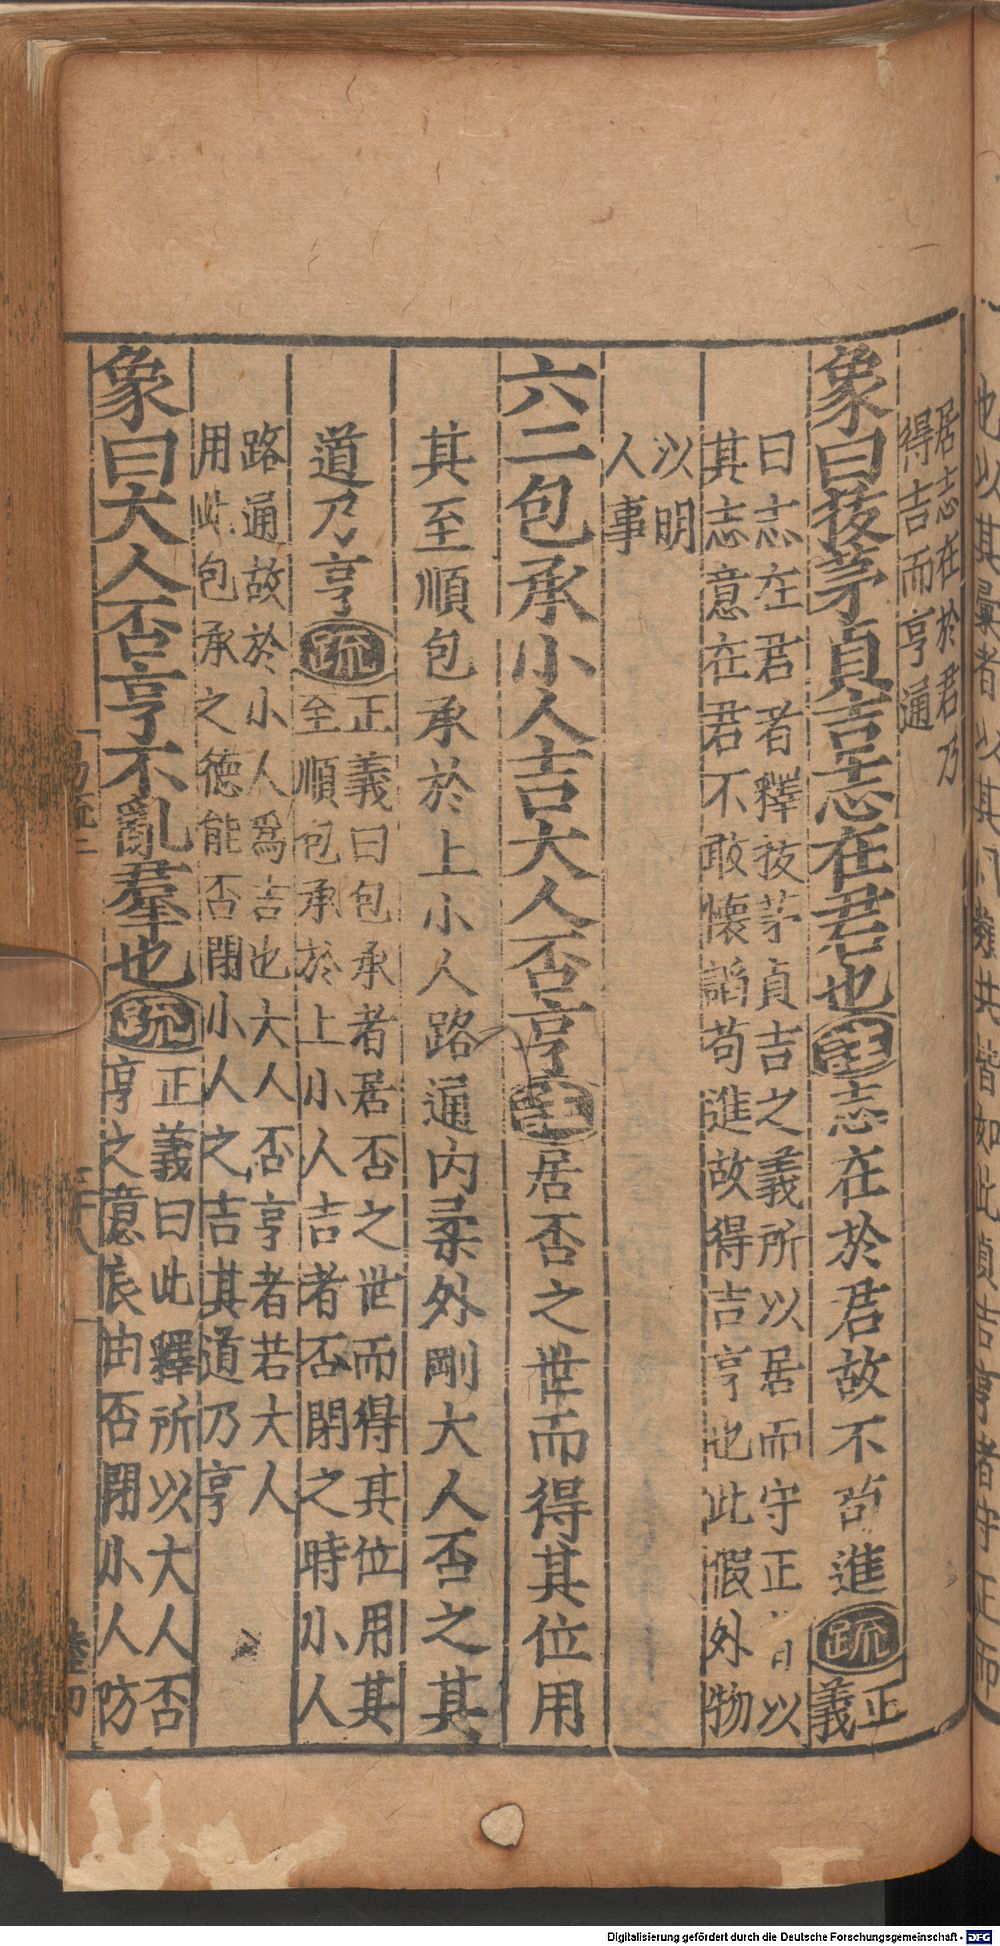 居志在於君乃
得吉而亨通
象曰拔茅貞吉志在君也注志在於君故不苟進疏正
義
曰志在君者釋拔茅貞吉之義所以居而守正者以
其志意在君不敢懷謟苟進故得吉亨也此假外物
以明
人事
六二包承小人吉大人否亨注居否之世而得其位用
其至順包承於上小人路通內柔外剛大人否之其
道乃亨疏正義曰包承者居否之世而得其位用其
至順包承於上小人吉者否閉之時小人
路通故於小人爲吉也大人否亨者若大人
用此包承之德能否閉小人之吉其道乃亨
象曰大人否亨不亂羣也疏正義曰此釋所以大人否
亨之意良由否閉小人防
易疏二
二十八
Digitalisierung gefördert durch die Deutsche Forschungsgemeinschaft - DFG